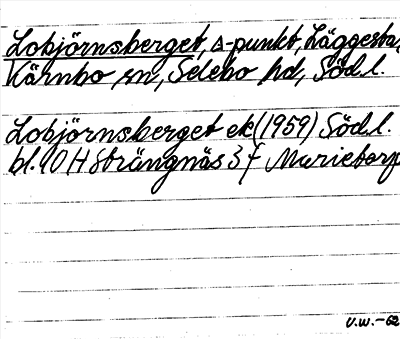 Lobjörnsberget, Δ-punkt, Läggesta,
Kärnbo sn, Selebo hd, Södl.
Lobjörnsberget ek (1959) Södl.
bl. 10 H Strängnäs 3 f Marietorp
U.W.-62